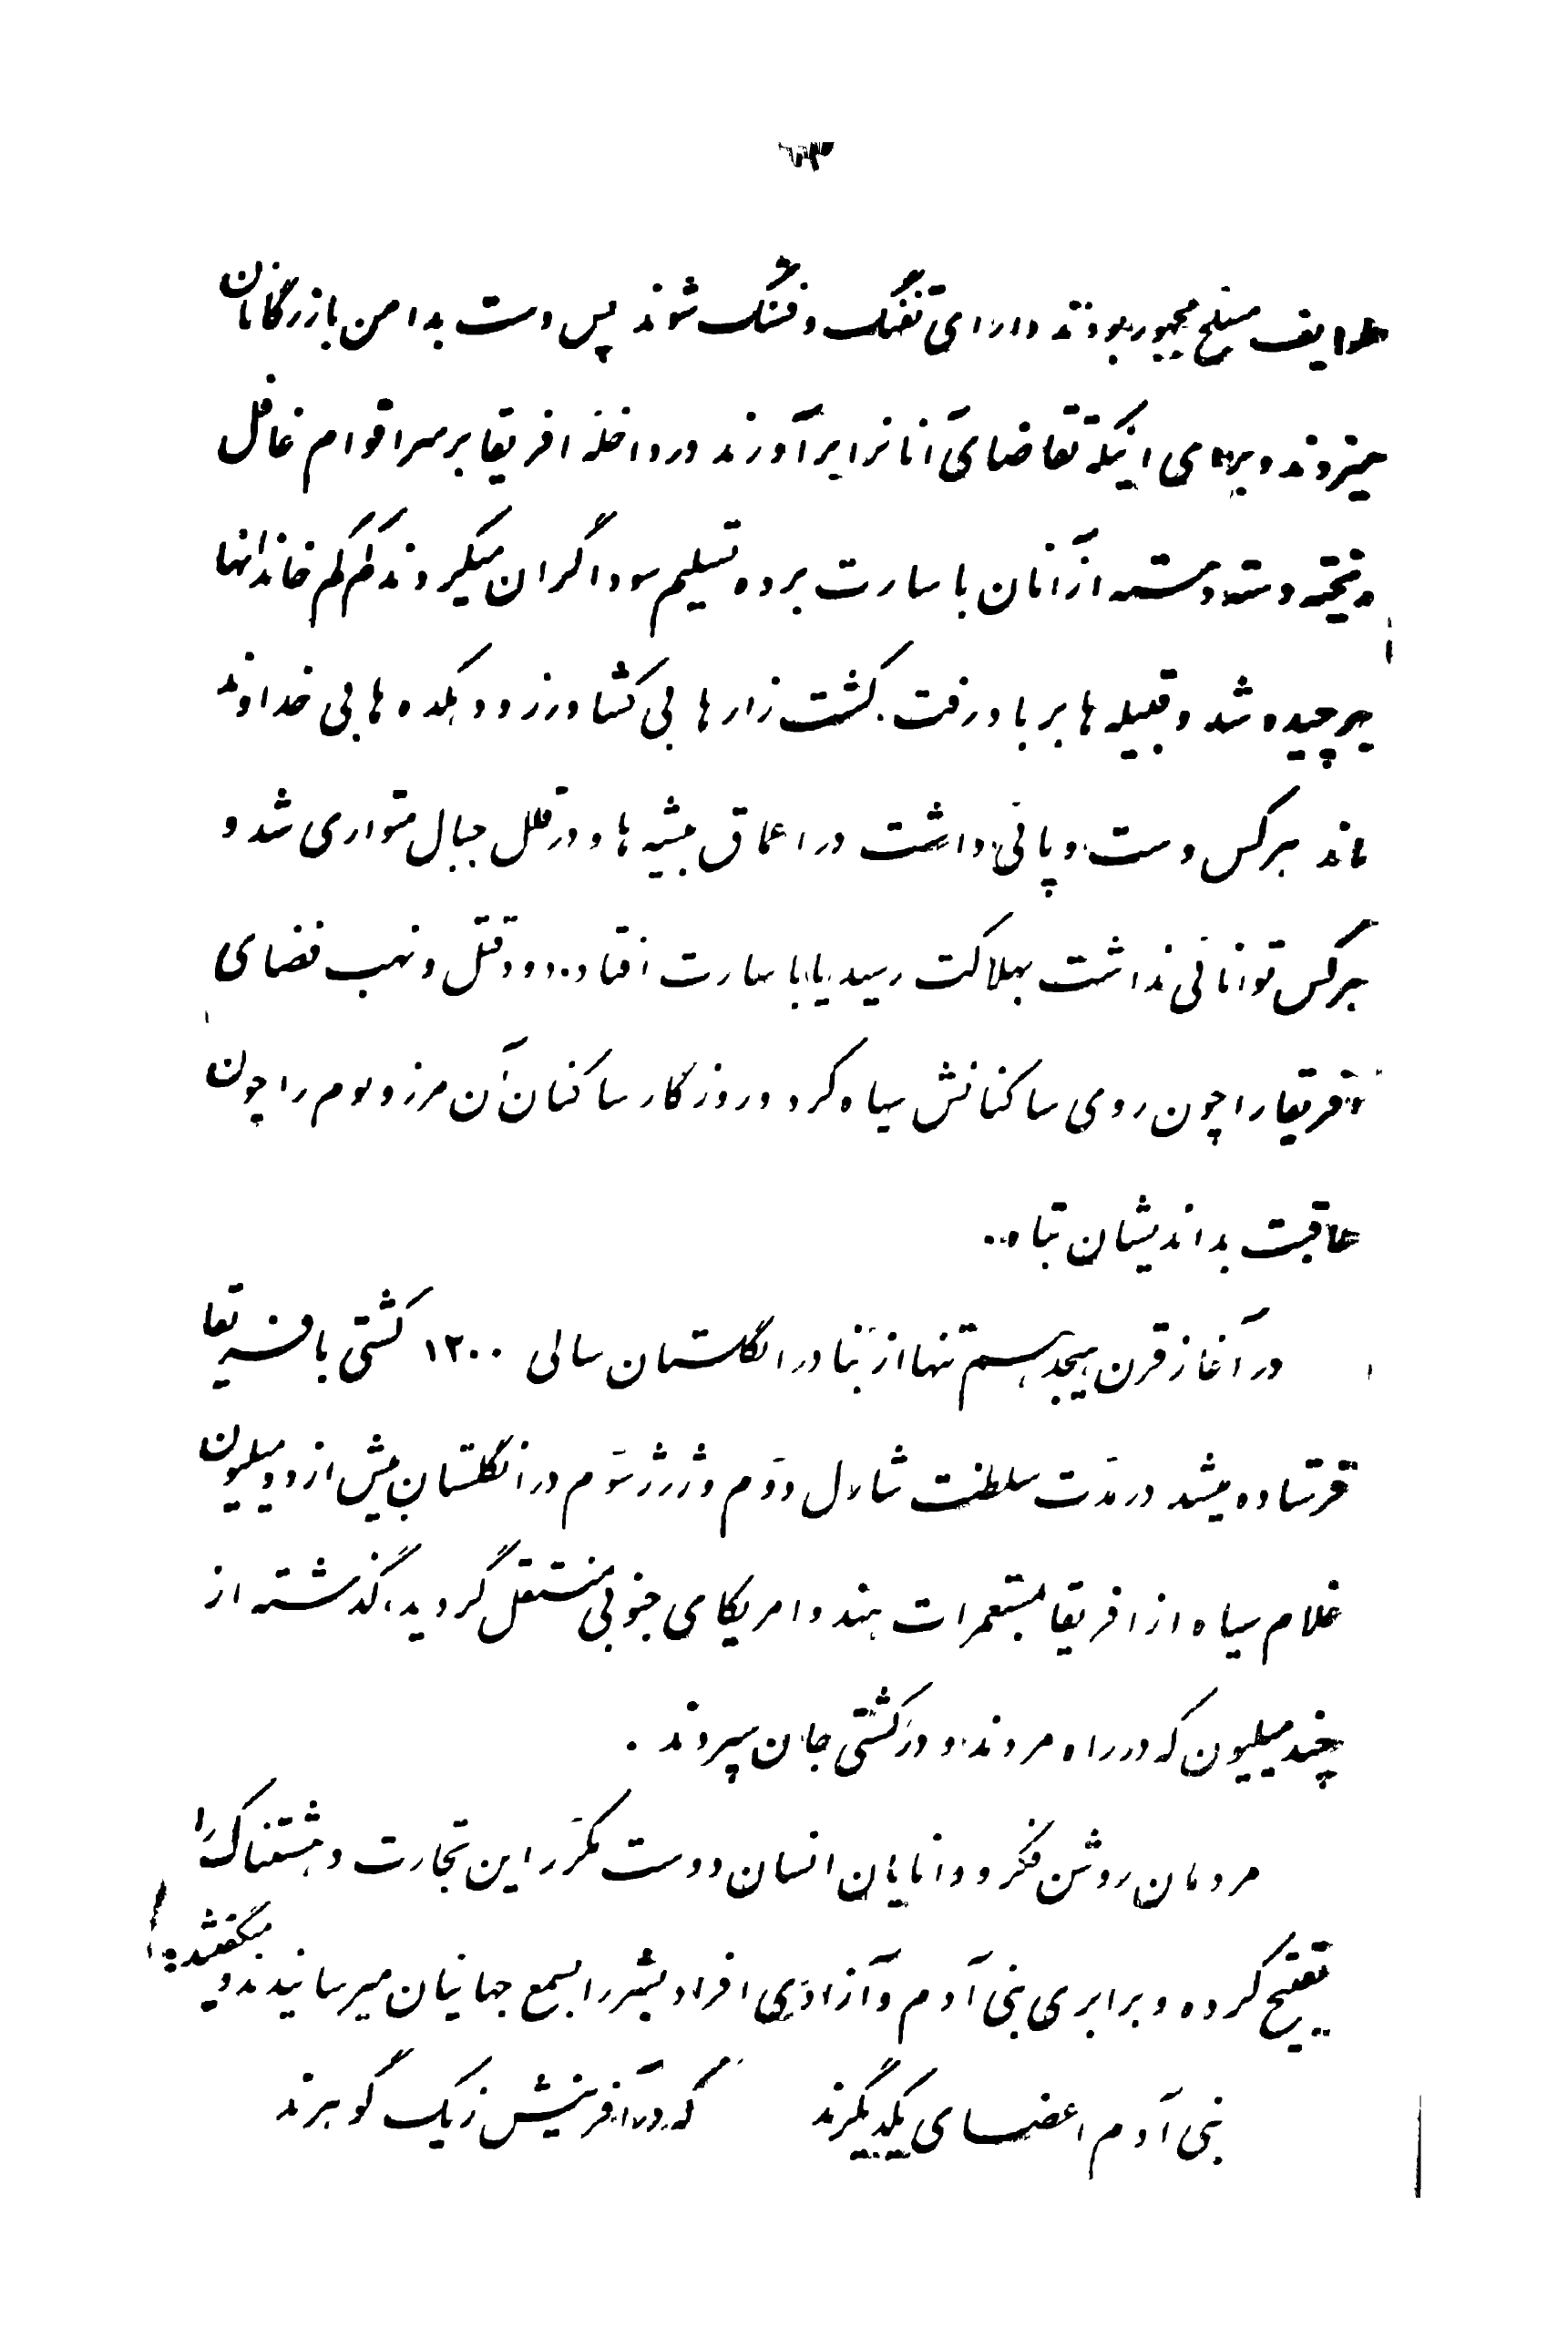 طوایف مسلح مجبور بودند دارای تفنگ و فشنگ شوند پس دست بدامن بازرگانان
میزدند و برای اینکه تقاضای آنانرا برآورند در داخله افریقا بر سر اقوام غافل
ریخته دسته دسته از آنان باسارت برده تسلیم سوداگران میکردند کم کم خاندانها
برچیده شد و قبیله ها بر باد رفت. کشت زارها بی کشاورز و دهکده ها بی خداوند
ماند هرکس دست و پائی داشت در اعماق بیشه ها و در قلل جبال متواری شد و
هرکس توانائی نداشت بهلاکت رسید یا باسارت افتاد. دود قتل و نهب فضای
افریقا را چون روی ساکنانش سیاه کرد و روزگار ساکنان آن مرز و بوم را چون
عاقبت بداندیشان تباه..
در آغاز قرن هیجدهم تنها از بنادر انگلستان سالی ۱۲۰۰ کشتی بافریقا
فرستاده میشد در مدت سلطنت شارل دوم و ژرژ سوم در انگلستان بیش از دو میلیون
غلام سیاه از افریقا بمستعمرات هند و امریکای جنوبی منتقل گردید، گذشته از
چند میلیون که در راه مردند و در کشتی جان سپردند.
مردمان روشن فکر و دانایان انسان دوست مکرر این تجارت دهشتناک را
تقبیح کرده و برابری بنی آدم و آزادی افراد بشر را بسمع جهانیان میرسانیدند و میگفتند:
بنی آدم اعضای یکدیگرند که در آفرینش ز یک گوهرند